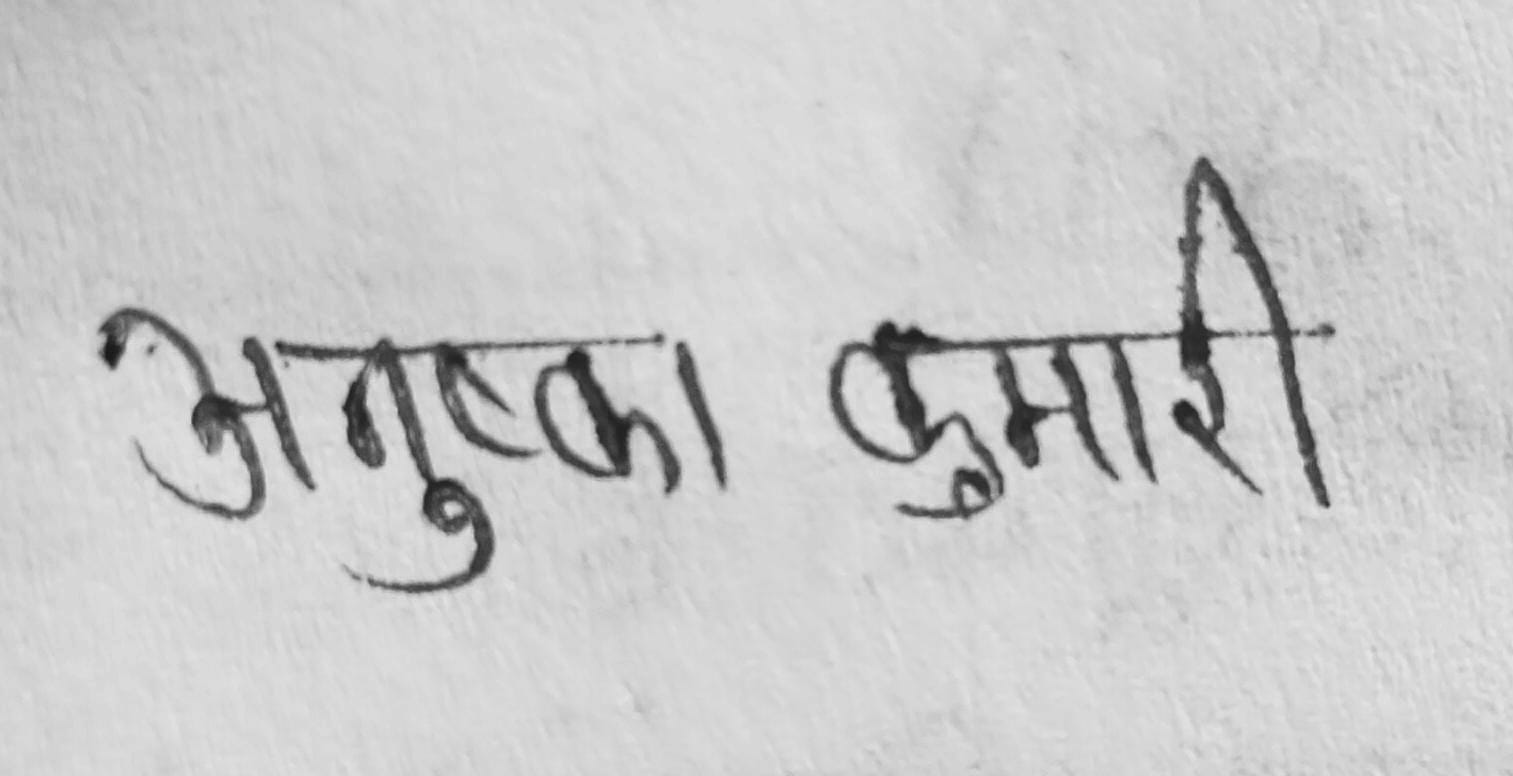 अनुष्का कुमारी